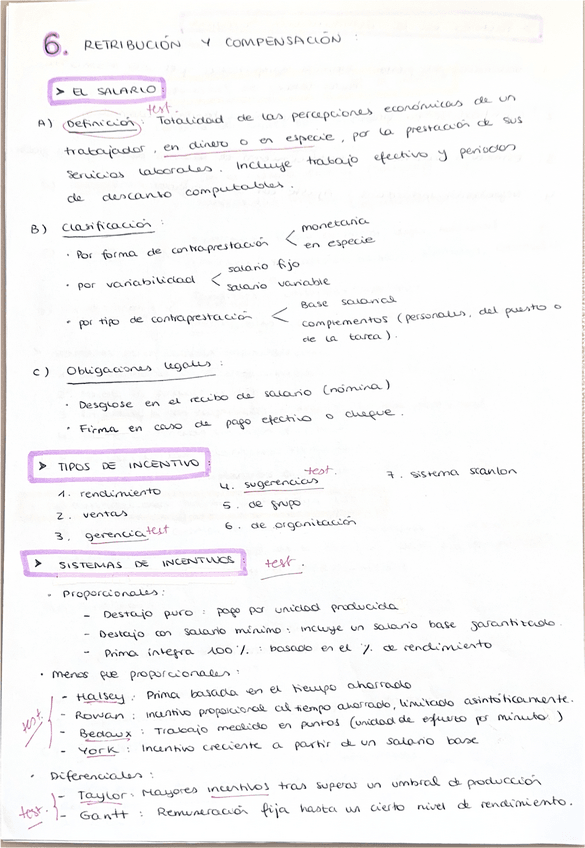 6. RETRIBUCIÓN Y COMPENSACIÓN :
➤ EL SALARIO
test.
A) Definición : Totalidad de las percepciones económicas de un
trabajador, en dinero o en especie, por la prestación de sus
servicios laborales. Incluye trabajo efectivo y periodos
de descanso computables.
B) Clasificación :
· Por forma de contraprestación < monetaria
en especie
· por variabilidad < salario fijo
salario variable
· por tipo de contraprestación < Base salarial
complementos (personales, del puesto o
de la tarea).
C) Obligaciones legales :
· Desglose en el recibo de salario (nómina)
· Firma en caso de pago efectivo o cheque.
➤ TIPOS DE INCENTIVO
1. rendimiento
2. ventas
3. gerencia test
test.
4. sugerencias
5. de grupo
6. de organización
7. sistema scanlon
➤ SISTEMAS DE INCENTIVOS test.
· Proporcionales:
- Destajo puro : pago por unidad producida
- Destajo con salario mínimo : incluye un salario base garantizado.
- Prima íntegra 100% : basado en el % de rendimiento
· Menos que proporcionales :
- Halsey : Prima basada en el tiempo ahorrado
- Rowan : incentivo proporcional al tiempo ahorrado, limitado asintóticamente.
test
- Bedaux : Trabajo medido en puntos (unidad de esfuerzo por minuto)
- York : Incentivo creciente a partir de un salario base
· Diferenciales :
- Taylor: Mayores incentivos tras superar un umbral de producción
test.
- Gantt : Remuneración fija hasta un cierto nivel de rendimiento.